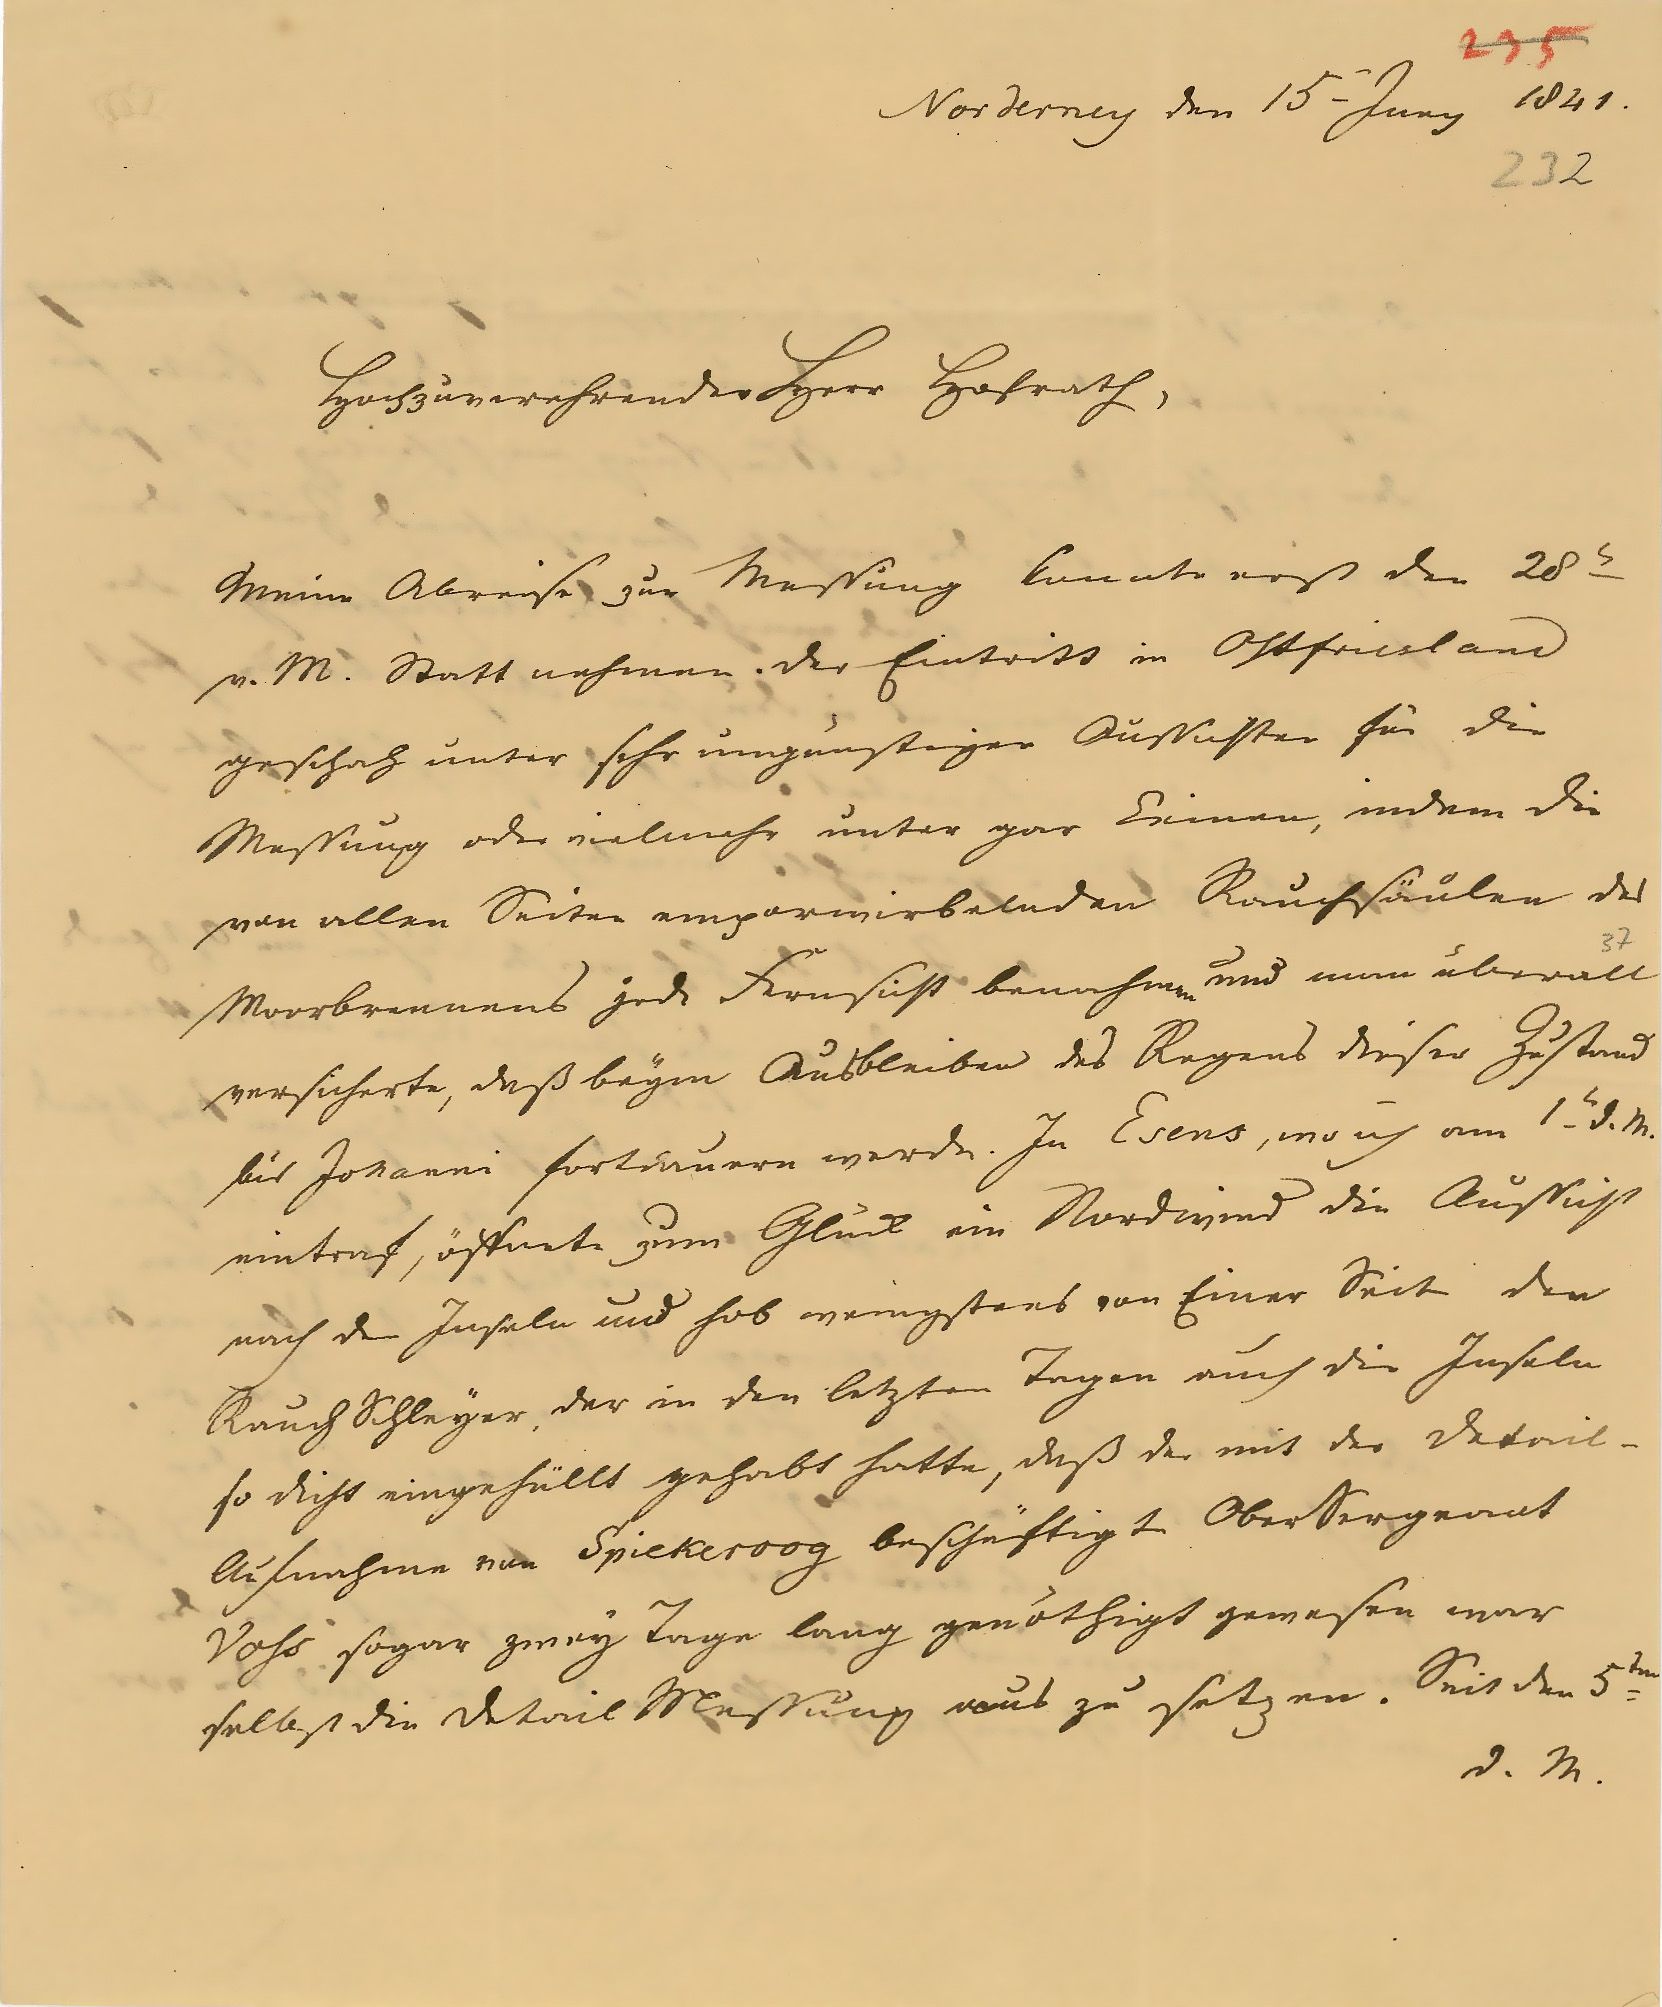 235
Norderney den 15ᵗ Juny 1841.
232
Hochzuverehrender Herr Hofrath,
Meine Abreise zur Messung konnte erst den 28ᵗ
v. M. Statt nehmen. Der Eintritt in Ostfriesland
geschah unter sehr ungünstigen Aussichten für die
Messung oder vielmehr unter gar keinen, indem die
von allen Seiten emporwirbelnden Rauchsäulen des
37
Moorbrennens jede Fernsicht benahmen und man überall
versicherte, daß beym Ausbleiben des Regens dieser Zustand
bis Johanni fortdauern werde. In Esens, wo ich am 1ᵗ d. M.
eintraf, öffnete zum Glück ein Nordwind die Aussicht
nach den Inseln und hob wenigstens von Einer Seite den
Rauch Schleyer, der in den letzten Tagen auch die Inseln
so dicht eingehüllt gehabt hatte, daß der mit der Detail-
Aufnahme von Spiekeroog beschäftigte Ober Sergeant
Vohs sogar zwey Tage lang genöthigt gewesen war
selbst die Detail Messung aus zu setzen. Seit den 5ᵗᵉⁿ
d. M.